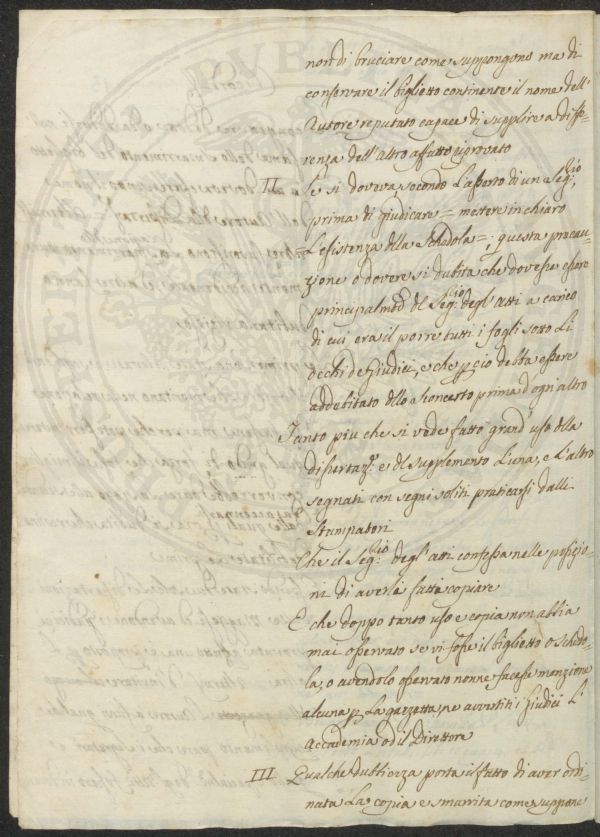 non di bruciare come suppongono ma di
conservare il biglietto continente il nome dell'
Autore reputato capace di supplire a diffe
renza dell'altro affatto sprovato
II Se si doveva secondo l'asserto di un Seg.rio
prima di giudicare = metere in chiaro
L'esistenza dlla Schedola = ; questa precau
zione o dovere si dubita che dovesse essere
principalm.te dl Seg.rio degl'atti a carico
di cui era il porre tutti i fogli sotto Li
occhi de Giudici, e che p cio debba essere
addebitato dllo sconcerto prima d'ogn'altro
Tanto piu che si vede fatto grand'uso dlla
dissertaz.e e dl supplemento L'una, e L'altro
segnati con segni soliti praticarsi dalli
Stampatori
Che il Seg.rio degl'atti confessa nelle posizio
ni di averle fatte copiare
E che doppo tanto uso e copia non abbia
mai osservato se vi fosse il biglietto o schedo
la, o avendolo osservato non ne facesse menzione
alcuna p La gazzetta, ne avvertiti i Giudici L'
Accademia od il Direttore
III Qualche dubbiezza porta il fatto di aver ordi
nata La copia e smarrita come suppone